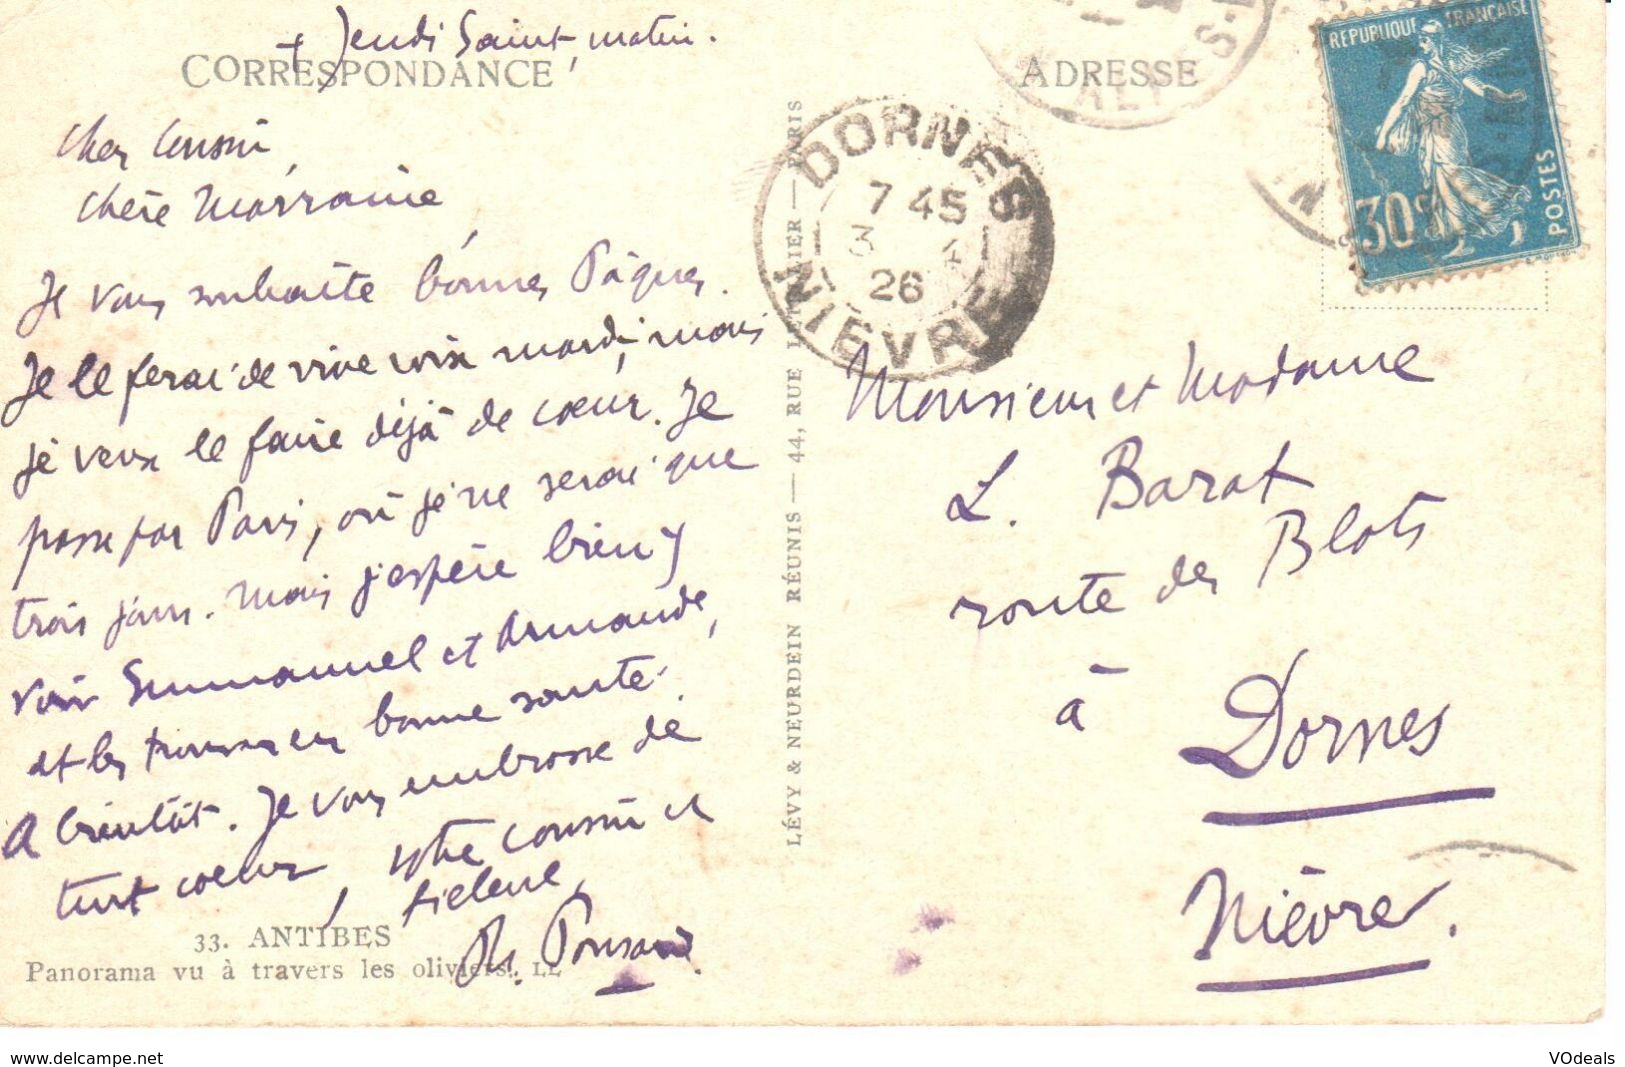 + Jeudi Saint, matin.
CORRESPONDANCE
Cher Cousin,
Chère Marraine
Je vous souhaite bonnes Pâques.
Je le ferai de vive voix mardi, mais
je veux le faire déjà de cœur. Je
passe par Paris, où je ne serai que
trois jours. Mais j'espère bien y
voir Emmanuel et Armande,
et les trouver en bonne santé.
A bientôt. Je vous embrasse de
tout coeur, votre cousin et
filleul,
33. ANTIBES
Panorama vu à travers les oliviers. LL
LÉVY & NEURDEIN RÉUNIS — 44, RUE LETELLIER — PARIS
ADRESSE
REPUBLIQUE FRANÇAISE
30c
POSTES
DORNES
7 45
3 4
26
NIÈVRE
Monsieur et Madame
L. Barat
route des Blots
à
Dornes
Nièvre.
www.delcampe.net
VOdeals